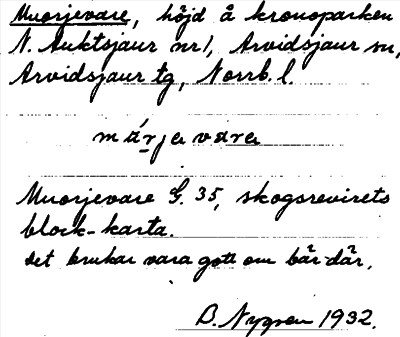 Muorjevare, höjd å kronoparken
N. Auktsjaur nr 1, Arvidsjaur sn,
Arvidsjaur tg, Norrb. l.
mu̯ɑ́rjɑvɑrɑ
Muorjevare G. 35, skogsrevirets
block-karta.
det brukar vara gott om bär där.
B. Nygren 1932.